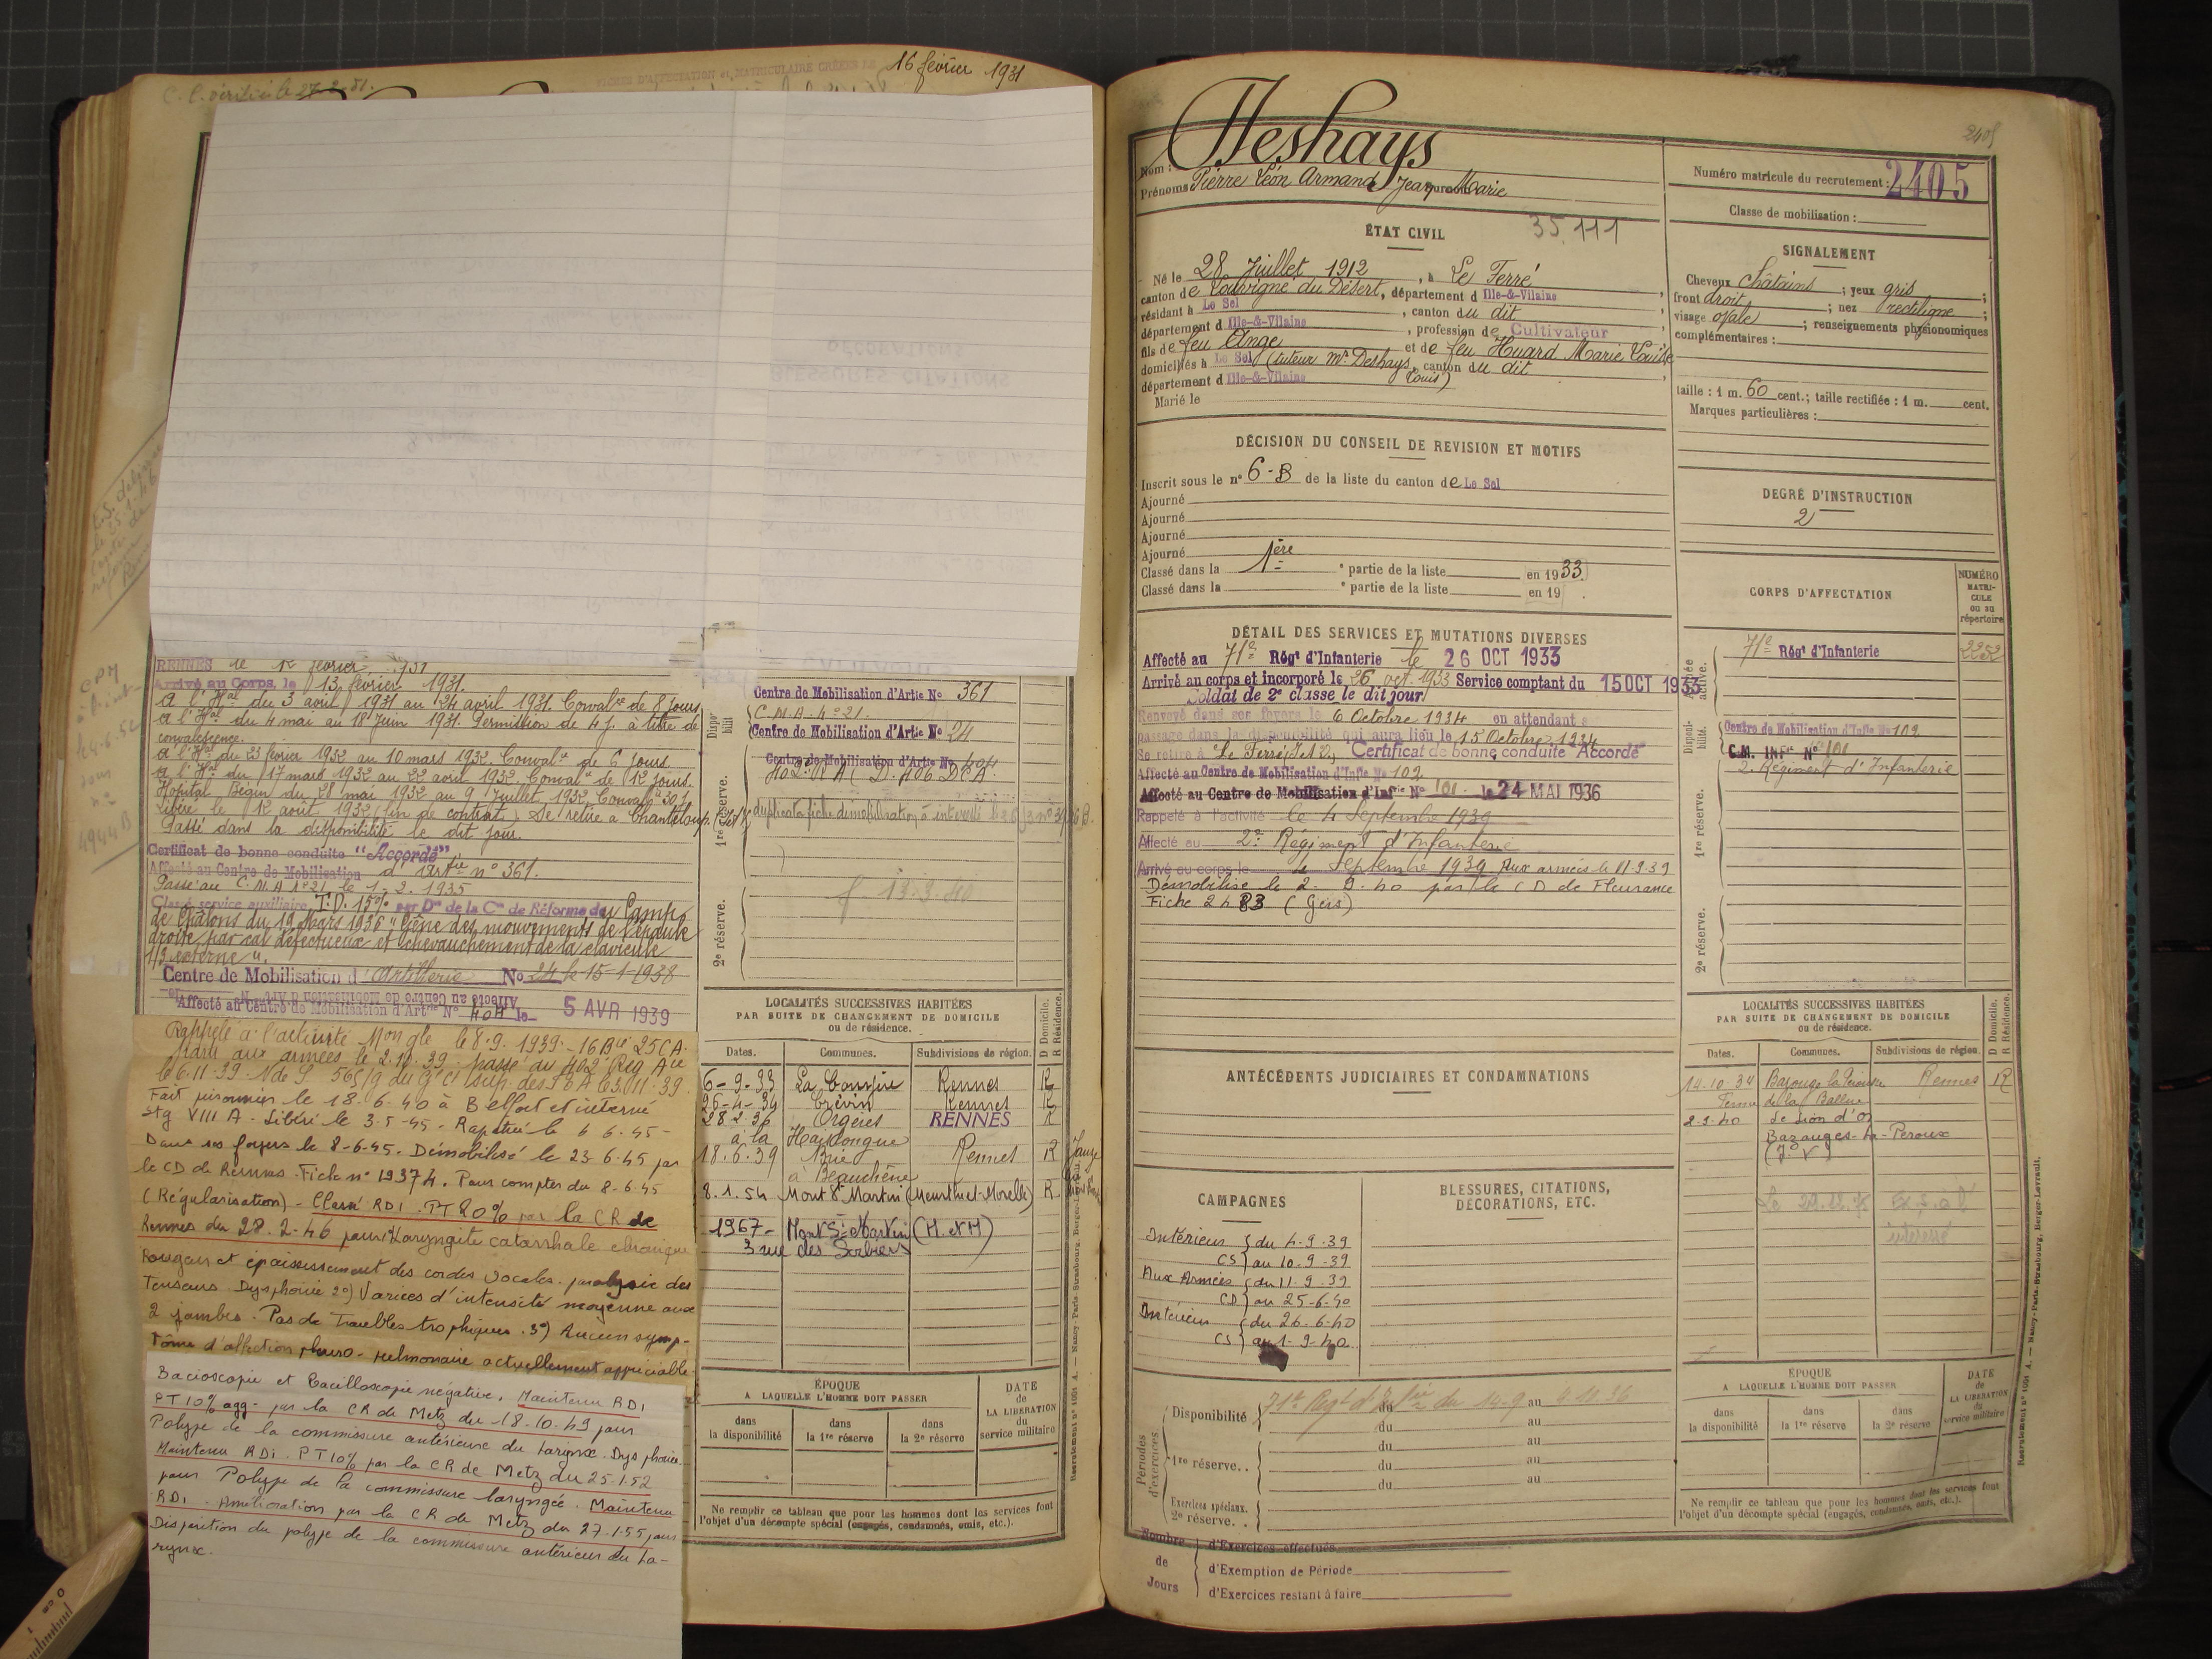 C.C. vérifié le 27-2-51.
FICHES D'AFFECTATION et MATRICULAIRE CRÉÉES LE 16 février 1931
RENNES le 12 février 1931
Arrivé au Corps, le 13 février 1931.
A l'Hal du 3 avril 1931 au 24 avril 1931. Convalce de 8 jours
A l'Hal du 4 mai au 18 Juin 1931. Permission de 4 j. à titre de
convalescence.
A l'Hal du 23 février 1932 au 10 mars 1932. Convalce de 6 jours
A l'Hal du 17 mars 1932 au 22 avril 1932. Convalce de 12 jours.
Hôpital Bégin du 28 mai 1932 au 9 Juillet 1932. Convalce 30 j.
Libéré le 12 août 1932 (fin de contrat). Se retire à Chanteloup.
Passé dans la disponibilité le dit jour.
Certificat de bonne conduite "Accordé"
Affecté au Centre de Mobilisation d'Artie n° 361.
Passé au C.M.A n°21 le 1.2.1935
Classé service auxiliaire T.D. 15% par Don de la Con de Réforme du Camp
de Châlons du 19 Mars 1936 "Gêne des mouvements de l'épaule
droite par cal défectueux et chevauchement de la clavicule
1/3 externe".
Centre de Mobilisation d'Artillerie No 24 le 15-1-1938
Affecté au Centre de Mobilisation d'Artie No 404 le 5 AVR 1939
Rappelé à l'activité Mon gle le 8.9.1939. 16 Bie 25 CA.
Parti aux armées le 2.10.39. passé au 402e Rég Aie
le 6.11.39.
Fait prisonnier le 18.6.40 à Belfort et interné
Stg VIII A. Libéré le 3-5-45. Rapatrié le 6 6.45-
Dans ses foyers le 8-6-45. Démobilisé le 23 6.45 par
le CD de Rennes. Fiche n° 19374. Pour compter du 8-6-45
(Régularisation) - Classé RDI. PT 20% par la CR de
Rennes du 28.2-46 pour: Laryngite catarrhale chronique
Rougeur et épaississement des cordes vocales. paralysie des
Tenseurs. Dysphonie 2°) Varices d'intensité moyenne aux
2 jambes. Pas de troubles trophiques. 3°) Aucun symp-
tôme d'affection pleuro-pulmonaire actuellement appréciable
Bacioscopie et bacilloscopie négative. Maintenu RDI
PT 10% agg- par la CR de Metz du 18.10.49 pour
Polype de la commissure antérieure du Larynx. Dysphonie.
Maintenu RDI. PT 10% par la CR de Metz du 25.1.52
pour Polype de la commissure laryngée. Maintenu
RDI. Amélioration par la CR de Metz du 27.1.55 pour
Disparition du polype de la commissure antérieur du La-
rynx.
Dispo-
nibilité
Centre de Mobilisation d'Artie No 361
C.M.A. n°21.
Centre de Mobilisation d'Artie No 24
Centre de Mobilisation d'Artie No 404
402e RA (D. 406 DCA.
1re réserve.
2e réserve.
13.3.40
LOCALITÉS SUCCESSIVES HABITÉES
PAR SUITE DE CHANGEMENT DE DOMICILE
ou de résidence.
D Domicile.
R Résidence.
Dates. Communes. Subdivisions de région.
6-9-33 La Couyère Rennes R
26-4-34 Crévin Rennes R
28 2 36 Orgères RENNES R
à la Haislongue
18.6.39 Brie Rennes R
à Beauchêne
8.1.54 Mont St Martin (Meurthe et Moselle) R
1967- Mont St Martin (M. et M)
3 rue des Sorbiers
ÉPOQUE
A LAQUELLE L'HOMME DOIT PASSER
DATE
de
LA LIBÉRATION
du
service militaire
dans
la disponibilité
dans
la 1re réserve
dans
la 2e réserve
Ne remplir ce tableau que pour les hommes dont les services font
l'objet d'un décompte spécial (engagés, condamnés, omis, etc.).
Recrutement n° 1051 A. — Nancy-Paris-Strasbourg, Berger-Levrault.
2405
Nom: Deshays
Prénoms: Pierre Léon Armand Jean Marie
Numéro matricule du recrutement: 2405
Classe de mobilisation:
ÉTAT CIVIL 35.111
Né le 28 Juillet 1912, à Le Ferré,
canton de Louvigné du Désert, département d Ille-&-Vilaine
résidant à Le Sel, canton du dit
département d Ille-&-Vilaine, profession de Cultivateur
fils de feu Ange et de feu Huard Marie Louise
domiciliés à Le Sel (tuteur Mr Deshays Louis), canton du dit
département d Ille-&-Vilaine
Marié le
SIGNALEMENT
Cheveux Châtains; yeux gris;
front droit; nez rectiligne;
visage ovale; renseignements physionomiques
complémentaires:
taille: 1 m. 60 cent.; taille rectifiée: 1 m. cent.
Marques particulières:
DÉCISION DU CONSEIL DE REVISION ET MOTIFS
Inscrit sous le n° 6-B de la liste du canton de Le Sel
Ajourné
Ajourné
Ajourné
Ajourné
Classé dans la 1ère e partie de la liste en 1933.
Classé dans la e partie de la liste en 19 .
DEGRÉ D'INSTRUCTION
2
DÉTAIL DES SERVICES ET MUTATIONS DIVERSES
Affecté au 71e Régt d'Infanterie le 26 OCT 1933
Arrivé au corps et incorporé le 26 oct. 1933 Service comptant du 15 OCT 1933
Soldat de 2e classe le dit jour
Renvoyé dans ses foyers le 6 Octobre 1934 en attendant s
passage dans la disponibilité qui aura lieu le 15 Octobre 1934
Se retire à Le Ferré (I et V) Certificat de bonne conduite "Accordé"
Affecté au Centre de Mobilisation d'Infie No 102
Affecté au Centre de Mobilisation d'Infie No 101 le 24 MAI 1936
Rappelé à l'activité le 4 Septembre 1939
Affecté au 2e Régiment d'Infanterie
Arrivé au corps le 4 Septembre 1939 Aux armées le 11.9.39
Démobilisé le 2. 9.40 par le CD de Fleurance
Fiche 2483 (Gers)
CORPS D'AFFECTATION
NUMÉRO
MATRI-
CULE
ou au
répertoire
Armée
active.
71e Régt d'Infanterie 2252
Disponi-
bilité.
Centre de Mobilisation d'Infie No 102
C.M. INFie No 101
2e Régiment d'Infanterie
1re réserve.
2e réserve.
ANTÉCÉDENTS JUDICIAIRES ET CONDAMNATIONS
LOCALITÉS SUCCESSIVES HABITÉES
PAR SUITE DE CHANGEMENT DE DOMICILE
ou de résidence.
D Domicile.
R Résidence.
Dates. Communes. Subdivisions de région.
14.10.34 Bazouge la Pérouse Rennes R
Ferme de la Ballue
2-9-40 Le Lion d'Or
Bazouges-la-Pérouse
(I et V)
CAMPAGNES
BLESSURES, CITATIONS,
DÉCORATIONS, ETC.
Intérieur { du 4-9-39
CS } au 10.9.39
Aux Armées { du 11.9.39
CD } au 25-6-40
Intérieur { du 26.6.40
CS } au 1-9-40
Périodes
d'exercices.
Disponibilité 71e Régt d'Infie du 14.9 au
du au
1re réserve.. du au
du au
du au
Exercices spéciaux.
2e réserve. .
Nombre
de
Jours
d'Exercices effectués
d'Exemption de Période
d'Exercices restant à faire
ÉPOQUE
A LAQUELLE L'HOMME DOIT PASSER
DATE
de
LA LIBÉRATION
du
service militaire
dans
la disponibilité
dans
la 1re réserve
dans
la 2e réserve
Ne remplir ce tableau que pour les hommes dont les services font
l'objet d'un décompte spécial (engagés, condamnés, omis, etc.).
Recrutement n° 1051 A. — Nancy-Paris-Strasbourg, Berger-Levrault.